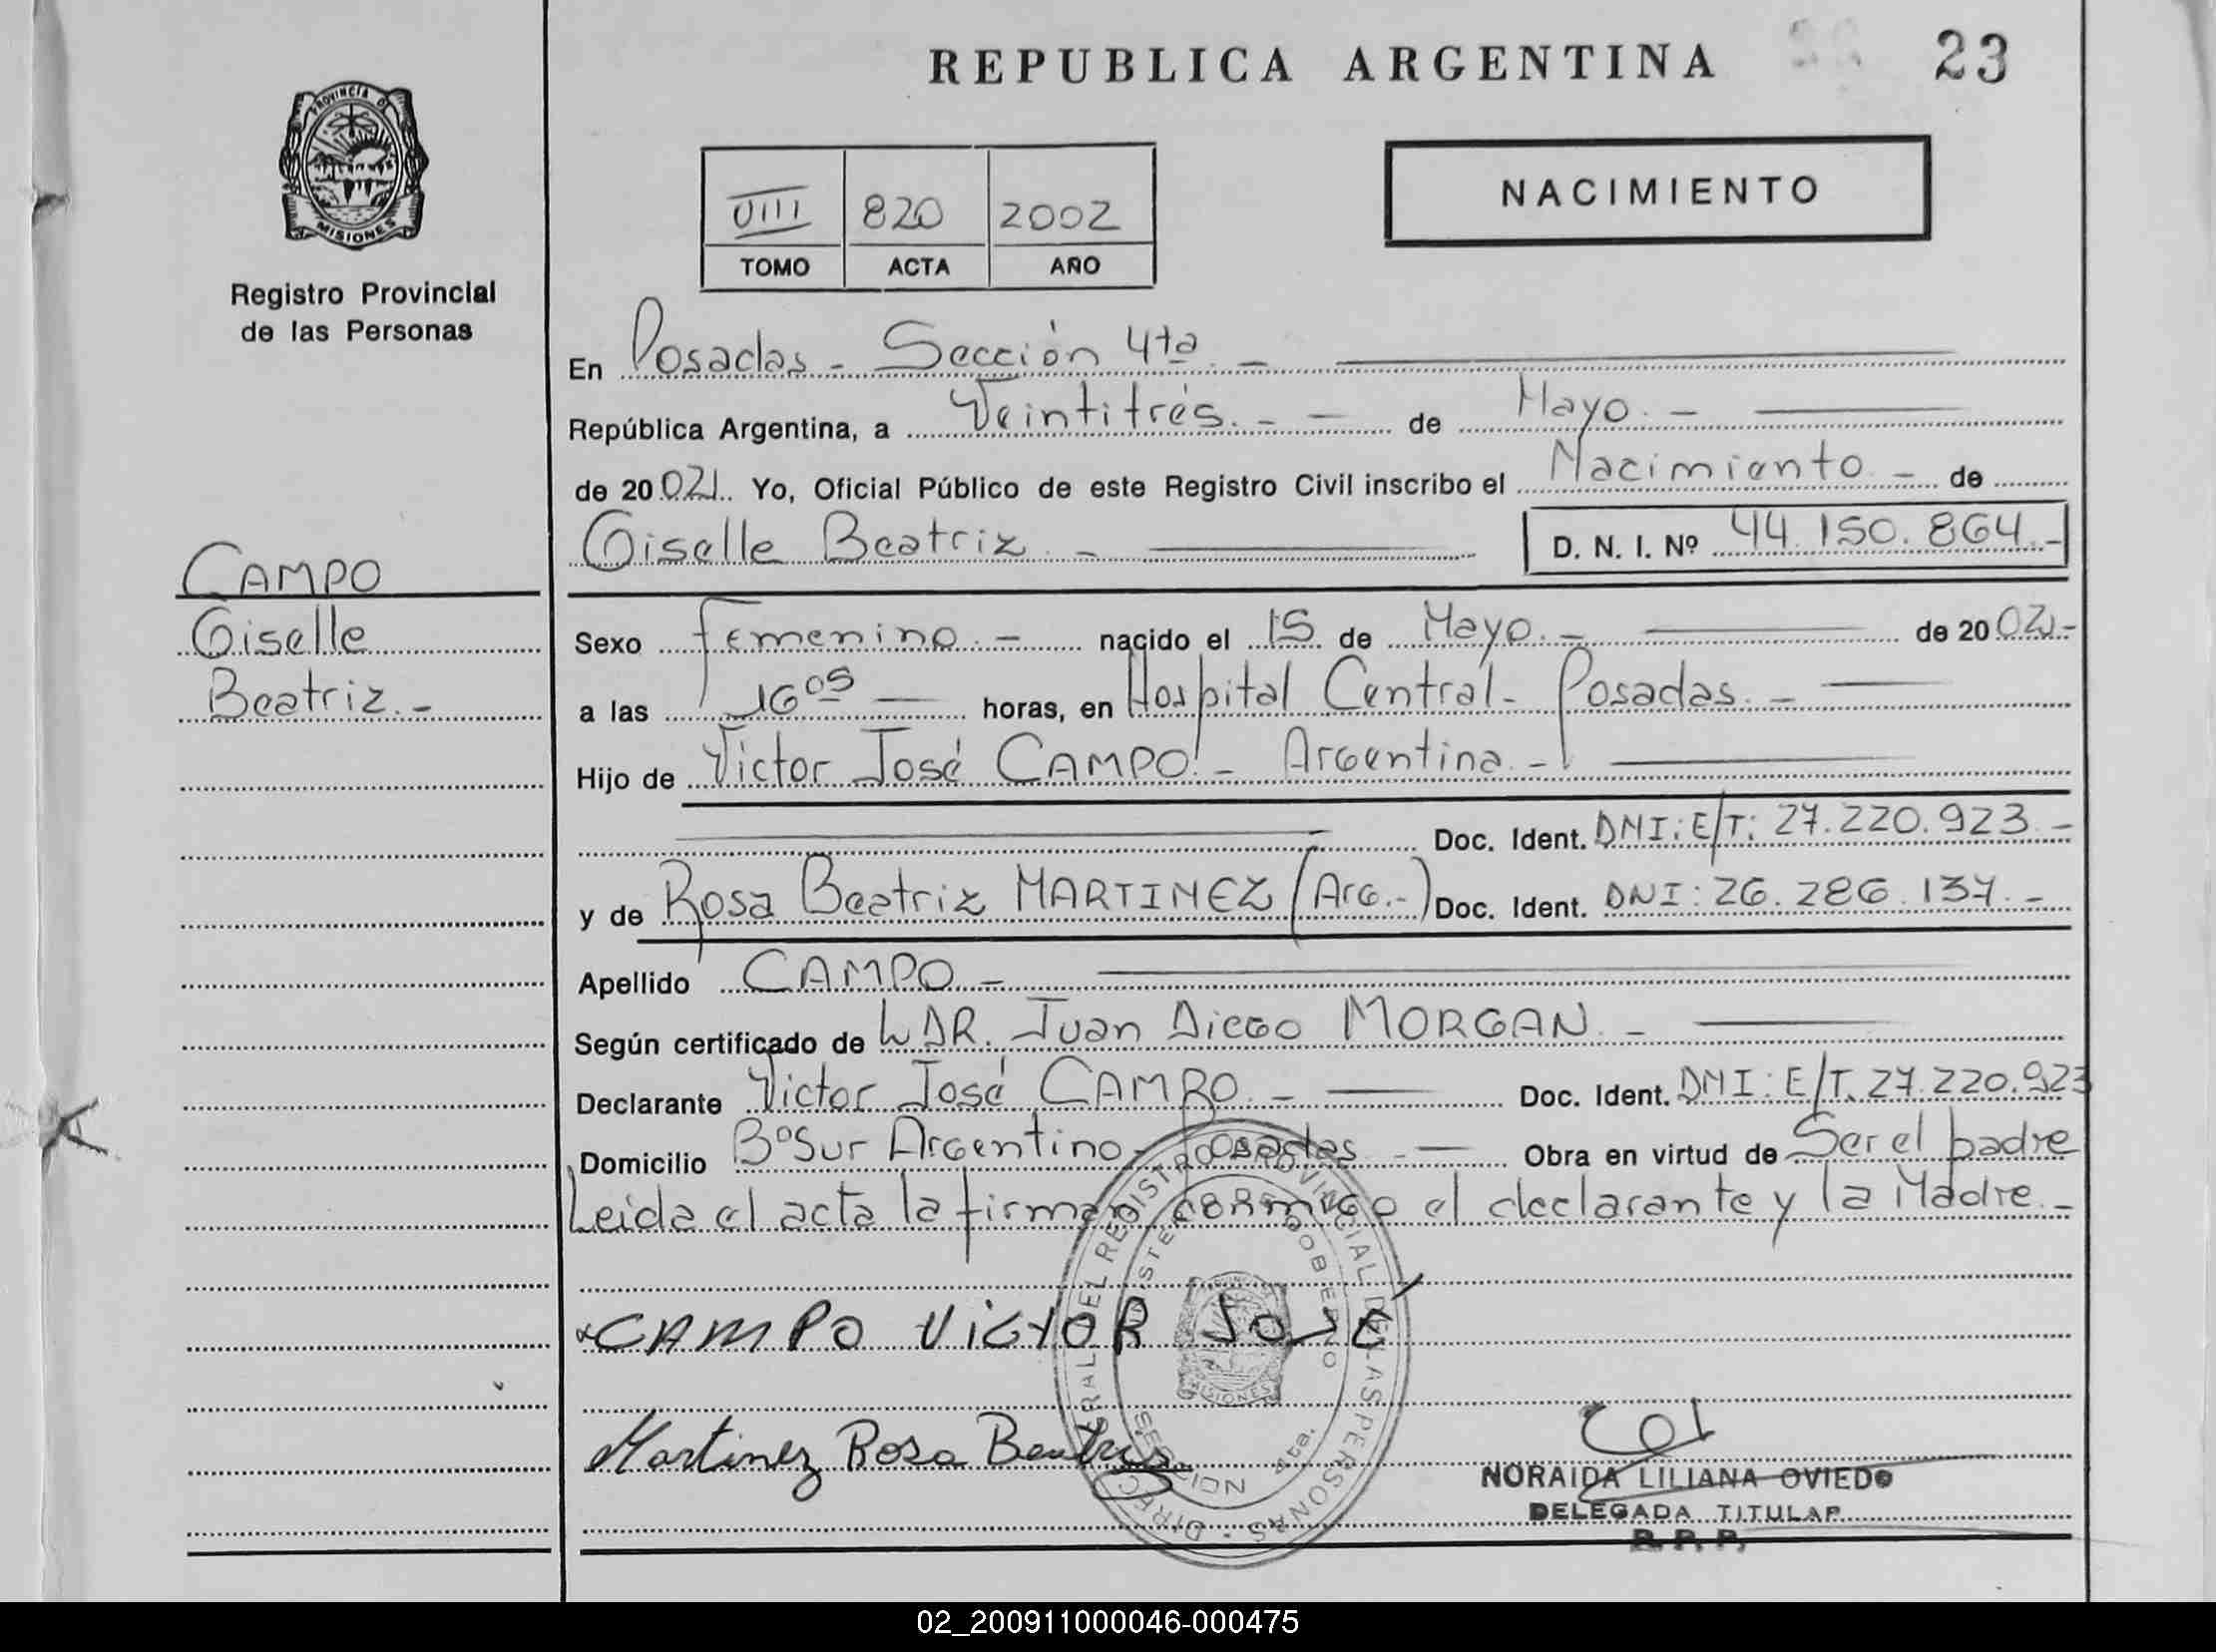 REPUBLICA ARGENTINA
23
PROVINCIA DE
MISIONES
Registro Provincial
de las Personas
VIII 820 2002
TOMO ACTA AÑO
NACIMIENTO
En Posadas - Sección 4ta. -
República Argentina, a Veintitrés. - de Mayo. -
de 20 02. Yo, Oficial Público de este Registro Civil inscribo el Nacimiento - de
Giselle Beatriz. - D. N. I. Nº 44.150.864. -
CAMPO
Giselle
Beatriz. -
Sexo Femenino. - nacido el 15 de Mayo. - de 20 02. -
a las 16 05 - horas, en Hospital Central - Posadas. -
Hijo de Victor José CAMPO - Argentina. -
Doc. Ident. DNI: E/T: 27.220.923. -
y de Rosa Beatriz MARTINEZ (Arg. -) Doc. Ident. DNI: 26.286.137. -
Apellido CAMPO -
Según certificado de DR. Juan Diego MORGAN. -
Declarante Victor José CAMPO. - Doc. Ident. DNI: E/T. 27.220.923
Domicilio Bº Sur Argentino - Posadas - Obra en virtud de Ser el padre
Leida el acta la firman conmigo el declarante y la Madre. -
CAMPO VICTOR JOSÉ
Martinez Rosa Beatriz
DIREC GENERAL DEL REGISTRO PROVINCIAL DE LAS PERSONAS
GOBIERNO
MISIONES
SECCION 4ta.
NORAIDA LILIANA OVIEDO
DELEGADA TITULAR
R. P. P.
02_200911000046-000475